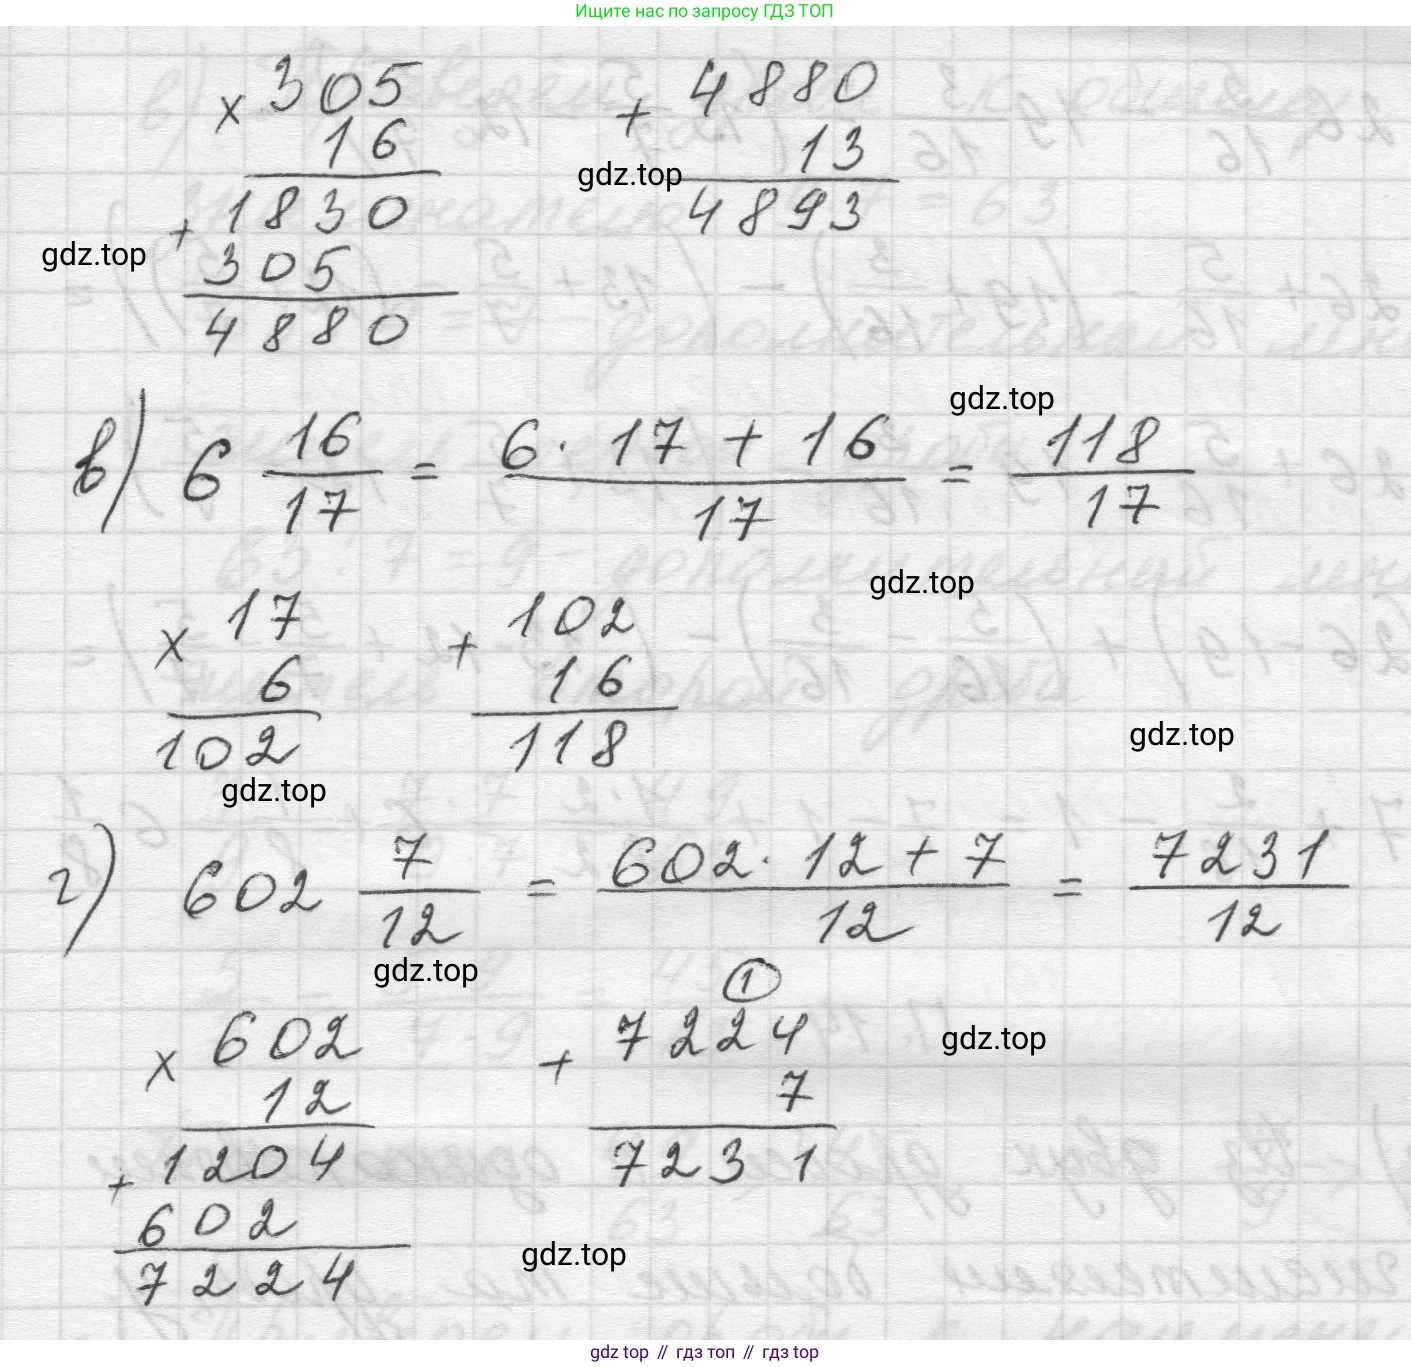 Ищите нас по запросу ГДЗ ТОП
× 305
16
+ 1830
305
4880
+ 4880
13
4893
gdz.top
gdz.top
gdz.top
в) 6 16/17 = (6 · 17 + 16)/17 = 118/17
gdz.top
× 17
6
102
+ 102
16
118
gdz.top
gdz.top
г) 602 7/12 = (602 · 12 + 7)/12 = 7231/12
gdz.top
× 602
12
+ 1204
602
7224
1
+ 7224
7
7231
gdz.top
gdz.top
gdz top // гдз топ // gdz top